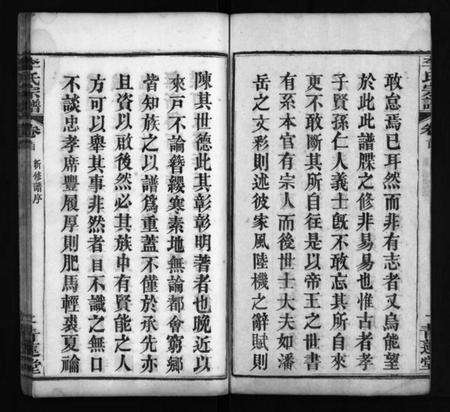 敢怠焉已耳然而非有志者又烏能望
於此此譜牒之修非易易也惟古者孝
子賢孫仁人義士旣不敢忘其所自來
更不敢斷其所自往是以帝王之世書
有系本官有宗人而後世士大夫如潘
岳之文彩則述彼家風陸機之辭賦則
李氏宗譜
卷首
青蓮堂
陳其世德此其彰彰明著者也晚近以
來戸不論簪纓寒素地無論都會窮鄉
皆知族之以譜爲重蓋不僅於承先亦
且資以啟後然必其族中有賢能之人
方可以舉其事非然者目不識之無口
不談忠孝席豐履厚則肥馬輕裘夏論
李氏宗譜
卷首
新修譜序
一
青蓮堂